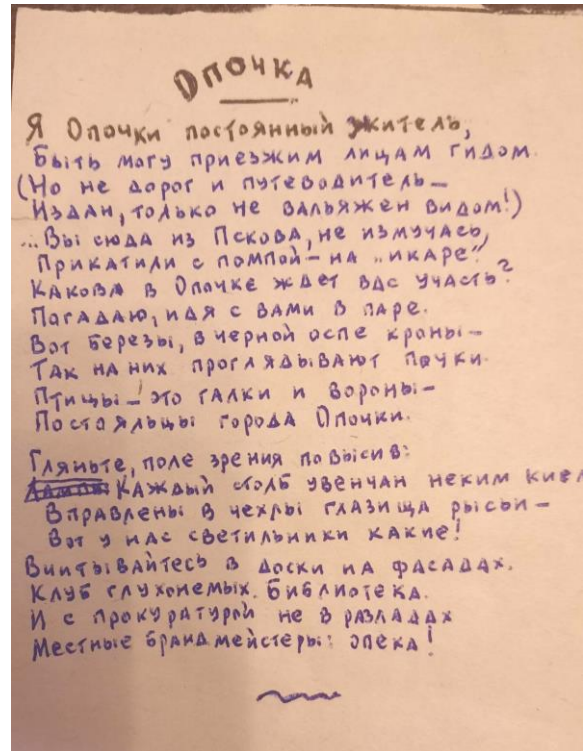 Опочка
Я Опочки постоянный житель,
Быть могу приезжим лицам гидом.
(Но не дорог и путеводитель —
Издан, только не вальяжен видом!)
...Вы сюда из Пскова, не измучась,
Прикатили с помпой — на „икаре".
Какова в Опочке ждет вас участь?
Погадаю, идя с вами в паре.
Вот березы, в черной оспе кроны —
Так на них проглядывают почки.
Птицы — это галки и вороны —
Постояльцы города Опочки.
Гляньте, поле зрения повысив:
Каждый столб увенчан неким
Вправлены в чехлы глазища рысьи —
Вот у нас светильники какие!
Вчитывайтесь в доски на фасадах.
Клуб глухонемых. Библиотека.
И с прокуратурой не в разладах
Местные брандмейстеры: опека!